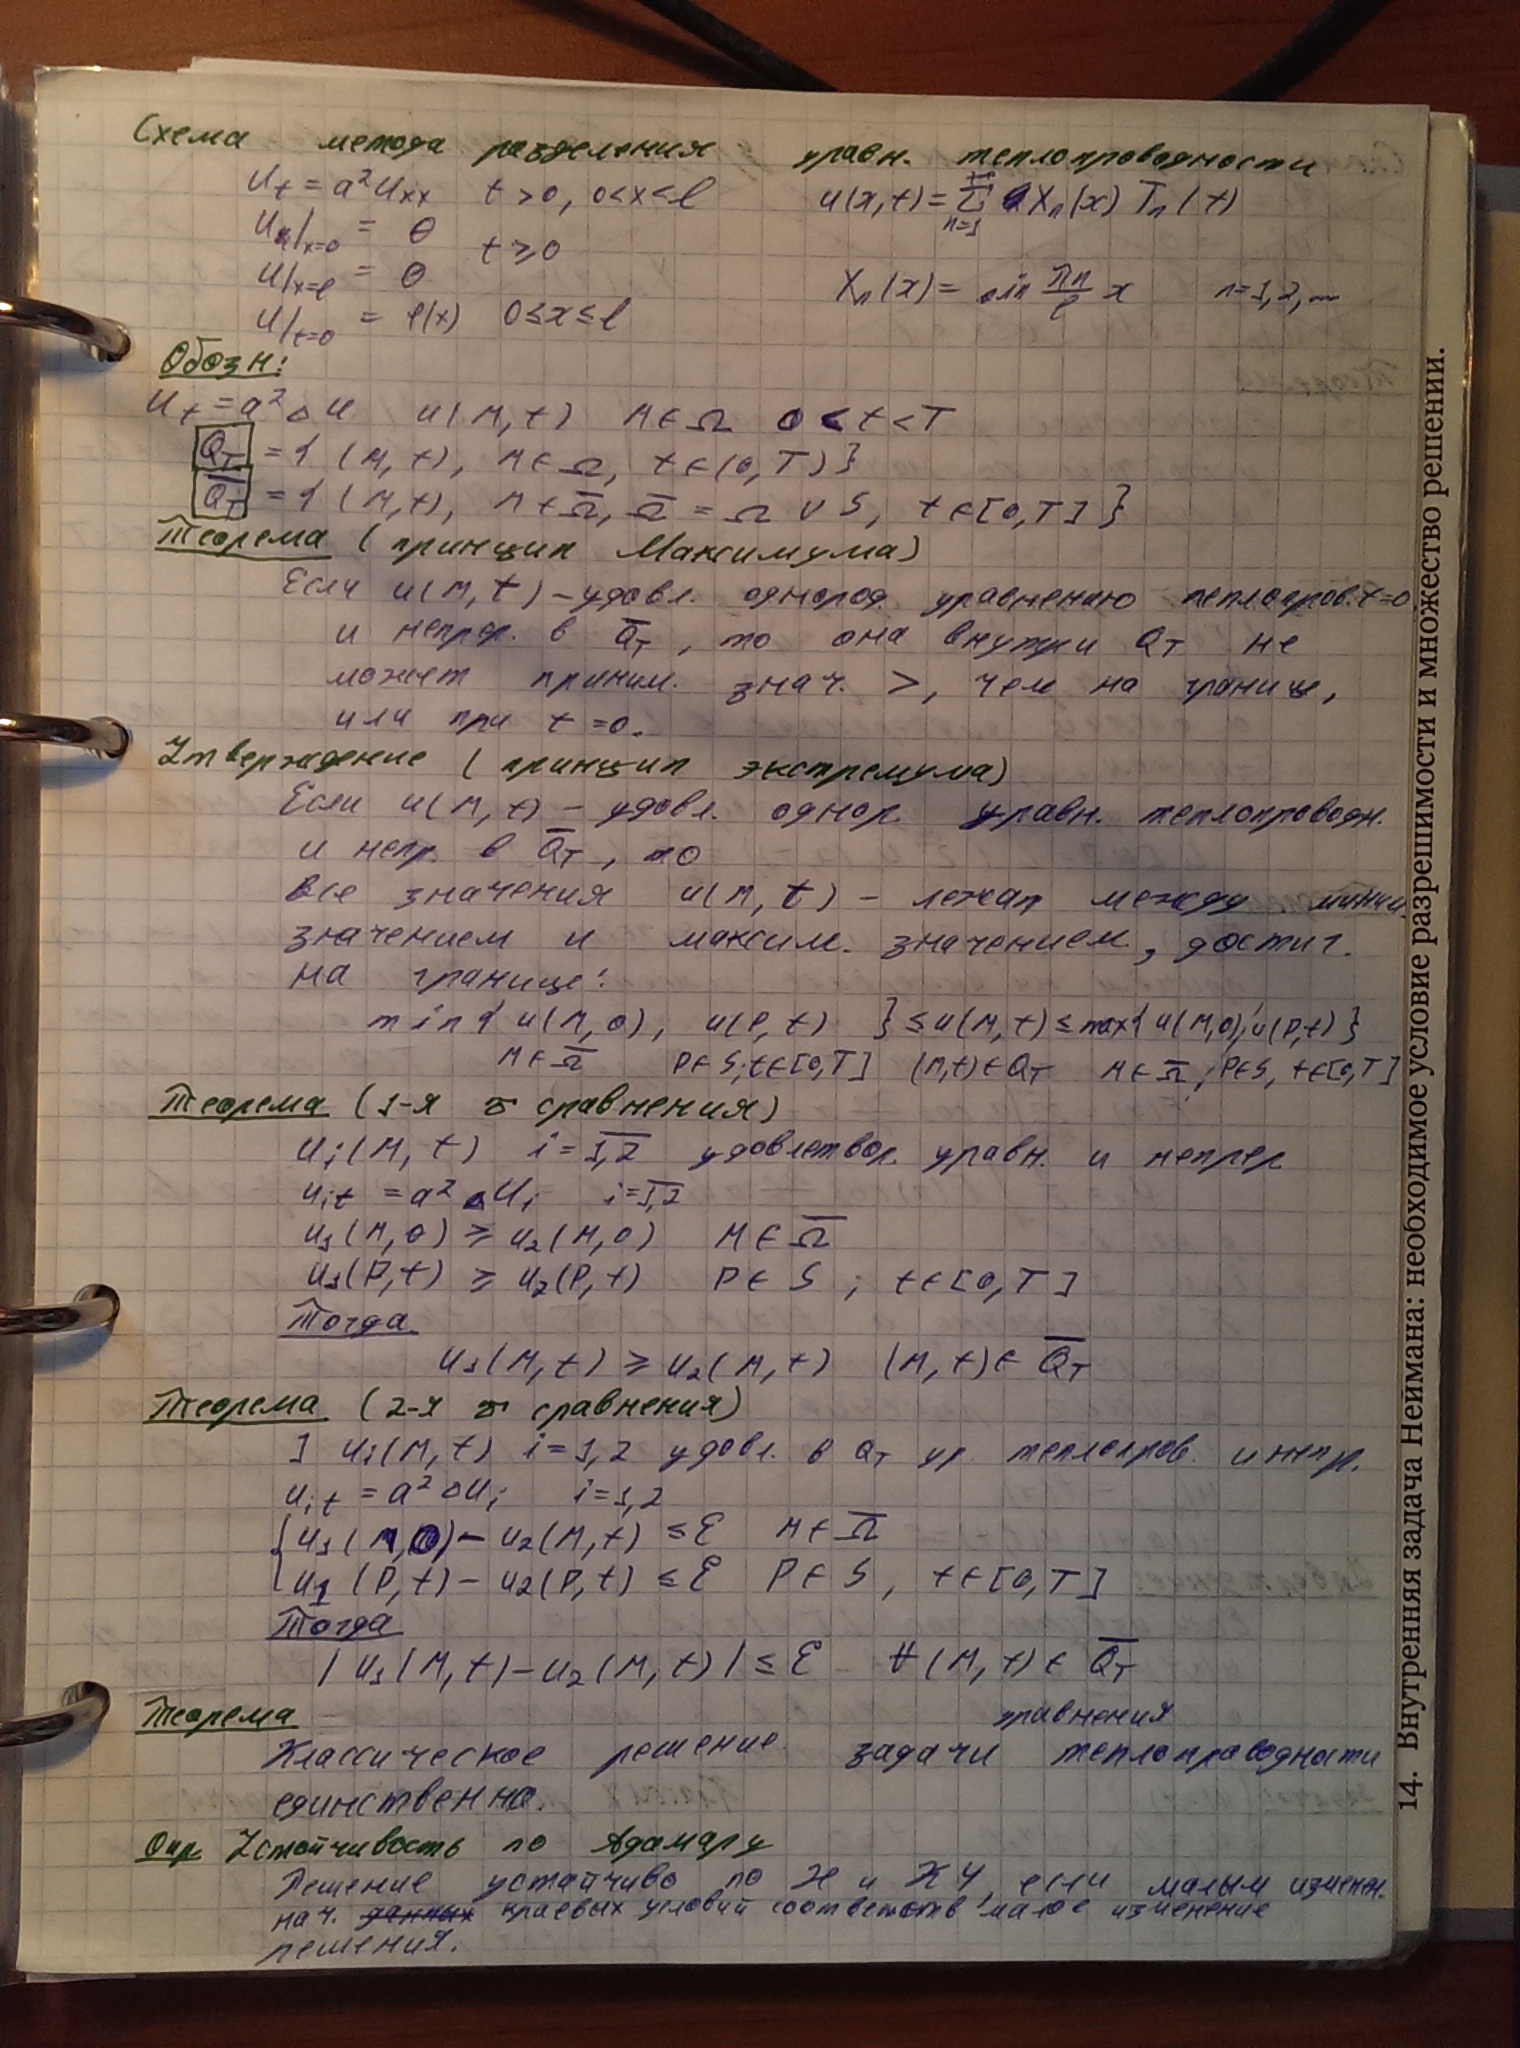 Схема метода разделения уравн. теплопроводности
u_t = a² u_xx t > 0, 0 < x < l u(x,t) = Σ_{n=1}^{+∞} X_n(x) T_n(t)
u|_{x=0} = 0 t ≥ 0
u|_{x=l} = 0 X_n(x) = sin πn/l x n=1,2,...
u|_{t=0} = φ(x) 0 ≤ x ≤ l
Обозн:
u_t = a² Δ u u(M,t) M ∈ Ω 0 < t < T
Q_T = { (M,t), M ∈ Ω, t ∈ (0,T) }
Q̅_T = { (M,t), M ∈ Ω̅, Ω̅ = Ω ∪ S, t ∈ [0,T] }
Теорема (принцип Максимума)
Если u(M,t) – удовл. однород. уравнению теплопров. t=0
и непрер. в Q̅_T, то она внутри Q_T не
может приним. знач. >, чем на границе,
или при t = 0.
Утверждение (принцип экстремума)
Если u(M,t) – удовл. однор. уравн. теплопроводн.
и непр. в Q̅_T, то
все значения u(M,t) – лежат между миним.
значением и максим. значением, достиг.
на границе:
min{ u(M,0), u(P,t) } ≤ u(M,t) ≤ max{ u(M,0); u(P,t) }
M ∈ Ω̅ P ∈ S; t ∈ [0,T] (M,t) ∈ Q_T M ∈ Ω̅; P ∈ S, t ∈ [0,T]
Теорема (1-я т сравнения)
u_i(M,t) i = 1,2 удовлетвор. уравн. и непрер
u_it = a² Δ u_i i = 1,2
u_1(M,0) ≥ u_2(M,0) M ∈ Ω̅
u_1(P,t) ≥ u_2(P,t) P ∈ S ; t ∈ [0,T]
Тогда
u_1(M,t) ≥ u_2(M,t) (M,t) ∈ Q̅_T
Теорема (2-я т сравнения)
] u_i(M,t) i = 1,2 удовл. в Q_T ур. теплопров. и непр.
u_it = a² Δ u_i i = 1,2
{ u_1(M,0) – u_2(M,t) ≤ ε M ∈ Ω̅
u_1(P,t) – u_2(P,t) ≤ ε P ∈ S, t ∈ [0,T]
Тогда
| u_1(M,t) – u_2(M,t) | ≤ ε ∀ (M,t) ∈ Q̅_T
Теорема
уравнения
Классическое решение задачи теплопроводности
единственно.
Опр Устойчивость по Адамару
Решение устойчиво по и КУ, если малым изменен.
нач. данных краевых условий соответств малое изменение
решения.
14. Внутренняя задача Неймана: необходимое условие разрешимости и множество решении.